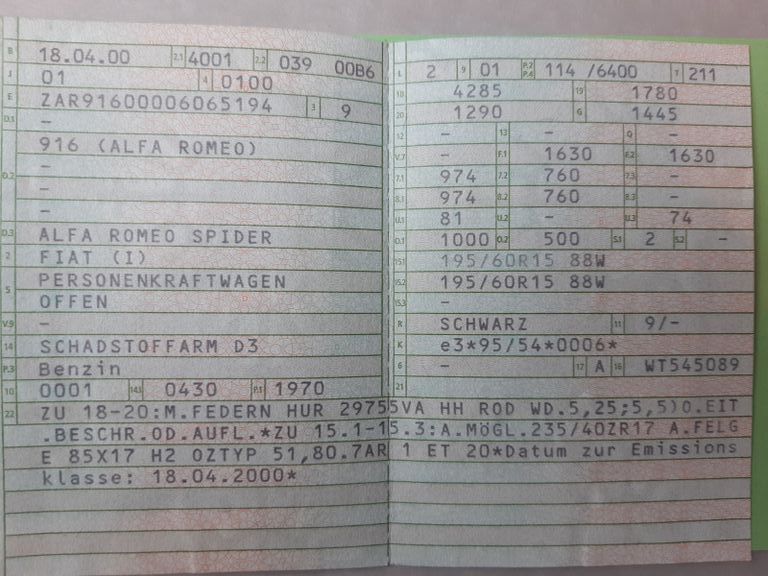 B 18.04.00 2.1 4001 2.2 039 00B6
J 01 4 0100
E ZAR91600006065194 3 9
D.1 -
916 (ALFA ROMEO)
-
D.2 -
-
D.3 ALFA ROMEO SPIDER
2 FIAT (I)
5 PERSONENKRAFTWAGEN
OFFEN
V.9 -
14 SCHADSTOFFARM D3
P.3 Benzin
10 0001 14.1 0430 P.1 1970
L 2 9 01 P.2 P.4 114 /6400 T 211
18 4285 19 1780
20 1290 G 1445
12 - 13 - Q -
V.7 - F.1 1630 F.2 1630
7.1 974 7.2 760 7.3 -
8.1 974 8.2 760 8.3 -
U.1 81 U.2 - U.3 74
O.1 1000 O.2 500 S.1 2 S.2 -
15.1 195/60R15 88W
15.2 195/60R15 88W
15.3 -
R SCHWARZ 11 9/-
K e3*95/54*0006*
6 - 17 A 16 WT545089
21
22 ZU 18-20:M.FEDERN HUR 29755VA HH ROD WD.5,25;5,5)O.EIT
.BESCHR.OD.AUFL.*ZU 15.1-15.3:A.MÖGL.235/40ZR17 A.FELG
E 85X17 H2 OZTYP 51,80.7AR 1 ET 20*Datum zur Emissions
klasse: 18.04.2000*